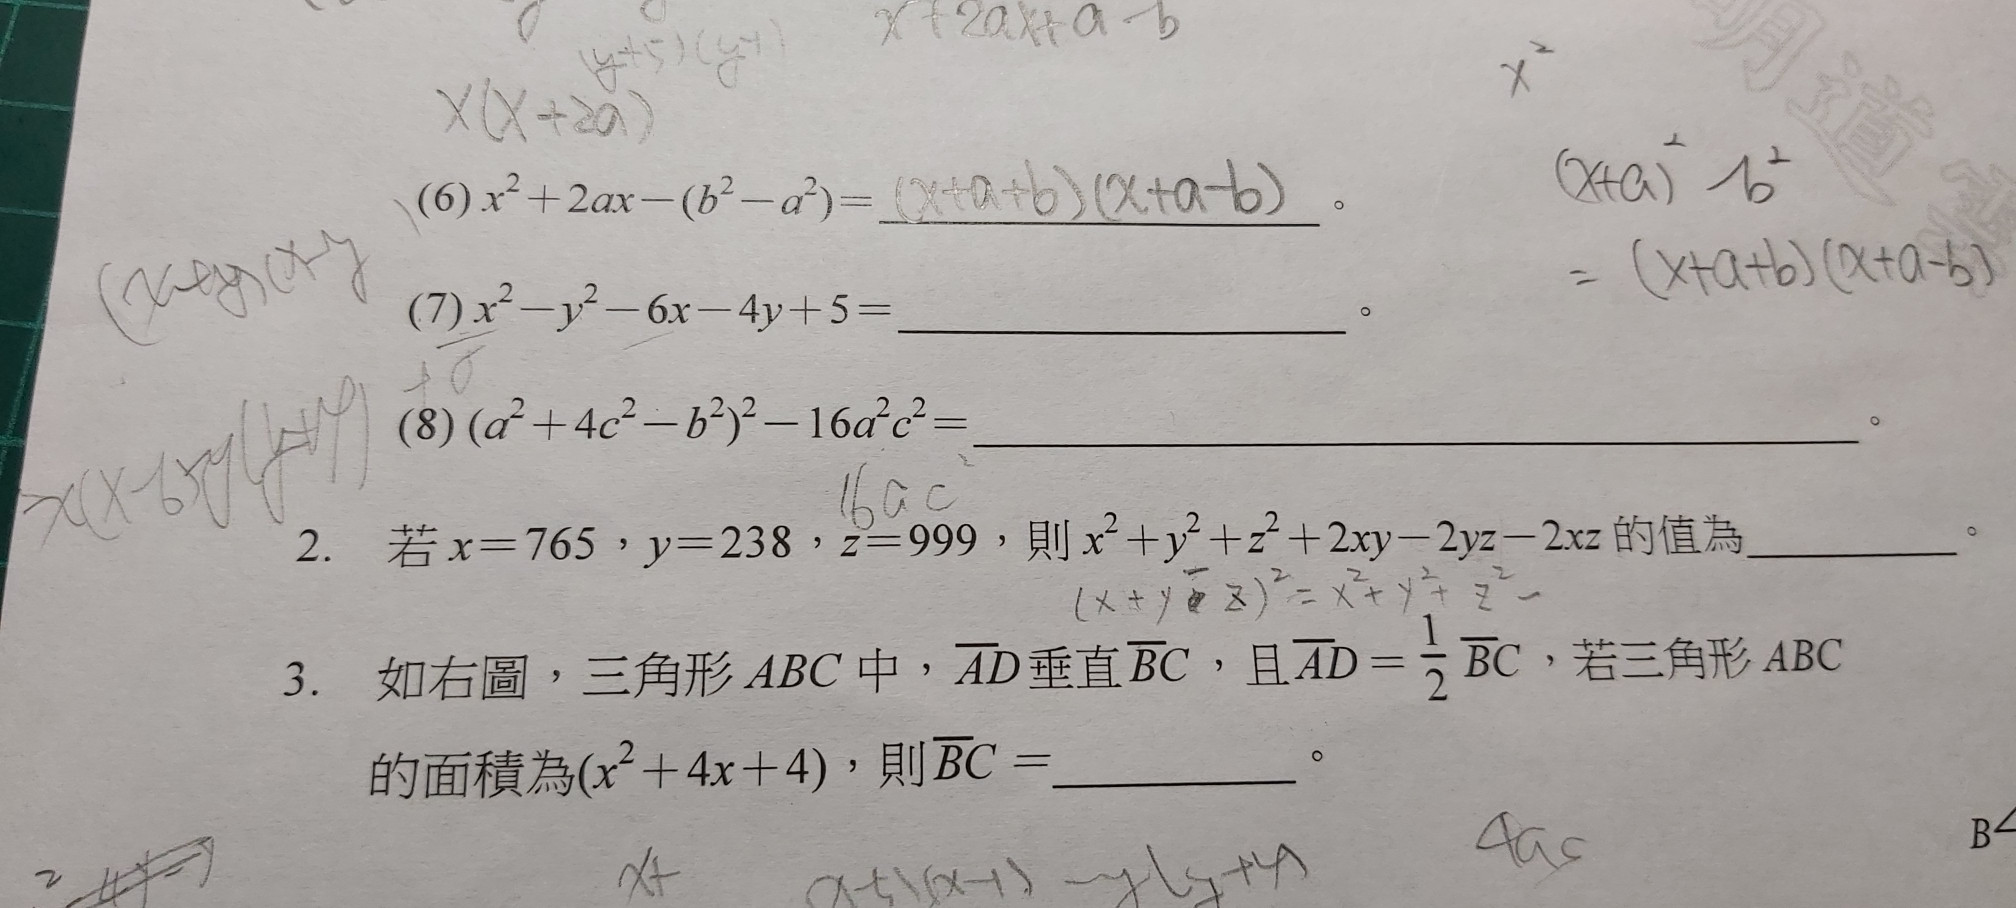 x²+2ax+a-b
(y+5)(y+1)
x(x+2a)
x²
明道
(6) x²+2ax-(b²-a²)= (x+a+b)(x+a-b) 。
(x+a)²-b²
=(x+a+b)(x+a-b)
(x+y)(x-y
(7) x²-y²-6x-4y+5=＿＿＿＿。
(8) (a²+4c²-b²)²-16a²c²=＿＿＿＿。
16ac²
2. 若x=765，y=238，z=999，則x²+y²+z²+2xy-2yz-2xz的值為＿＿＿＿。
(x+y-z)²=x²+y²+z²-
3. 如右圖，三角形ABC中，A̅D̅垂直B̅C̅，且A̅D̅=1/2 B̅C̅，若三角形ABC
的面積為(x²+4x+4)，則B̅C̅=＿＿＿＿。
B
4ac
x+
(x-1)-y(y+4)